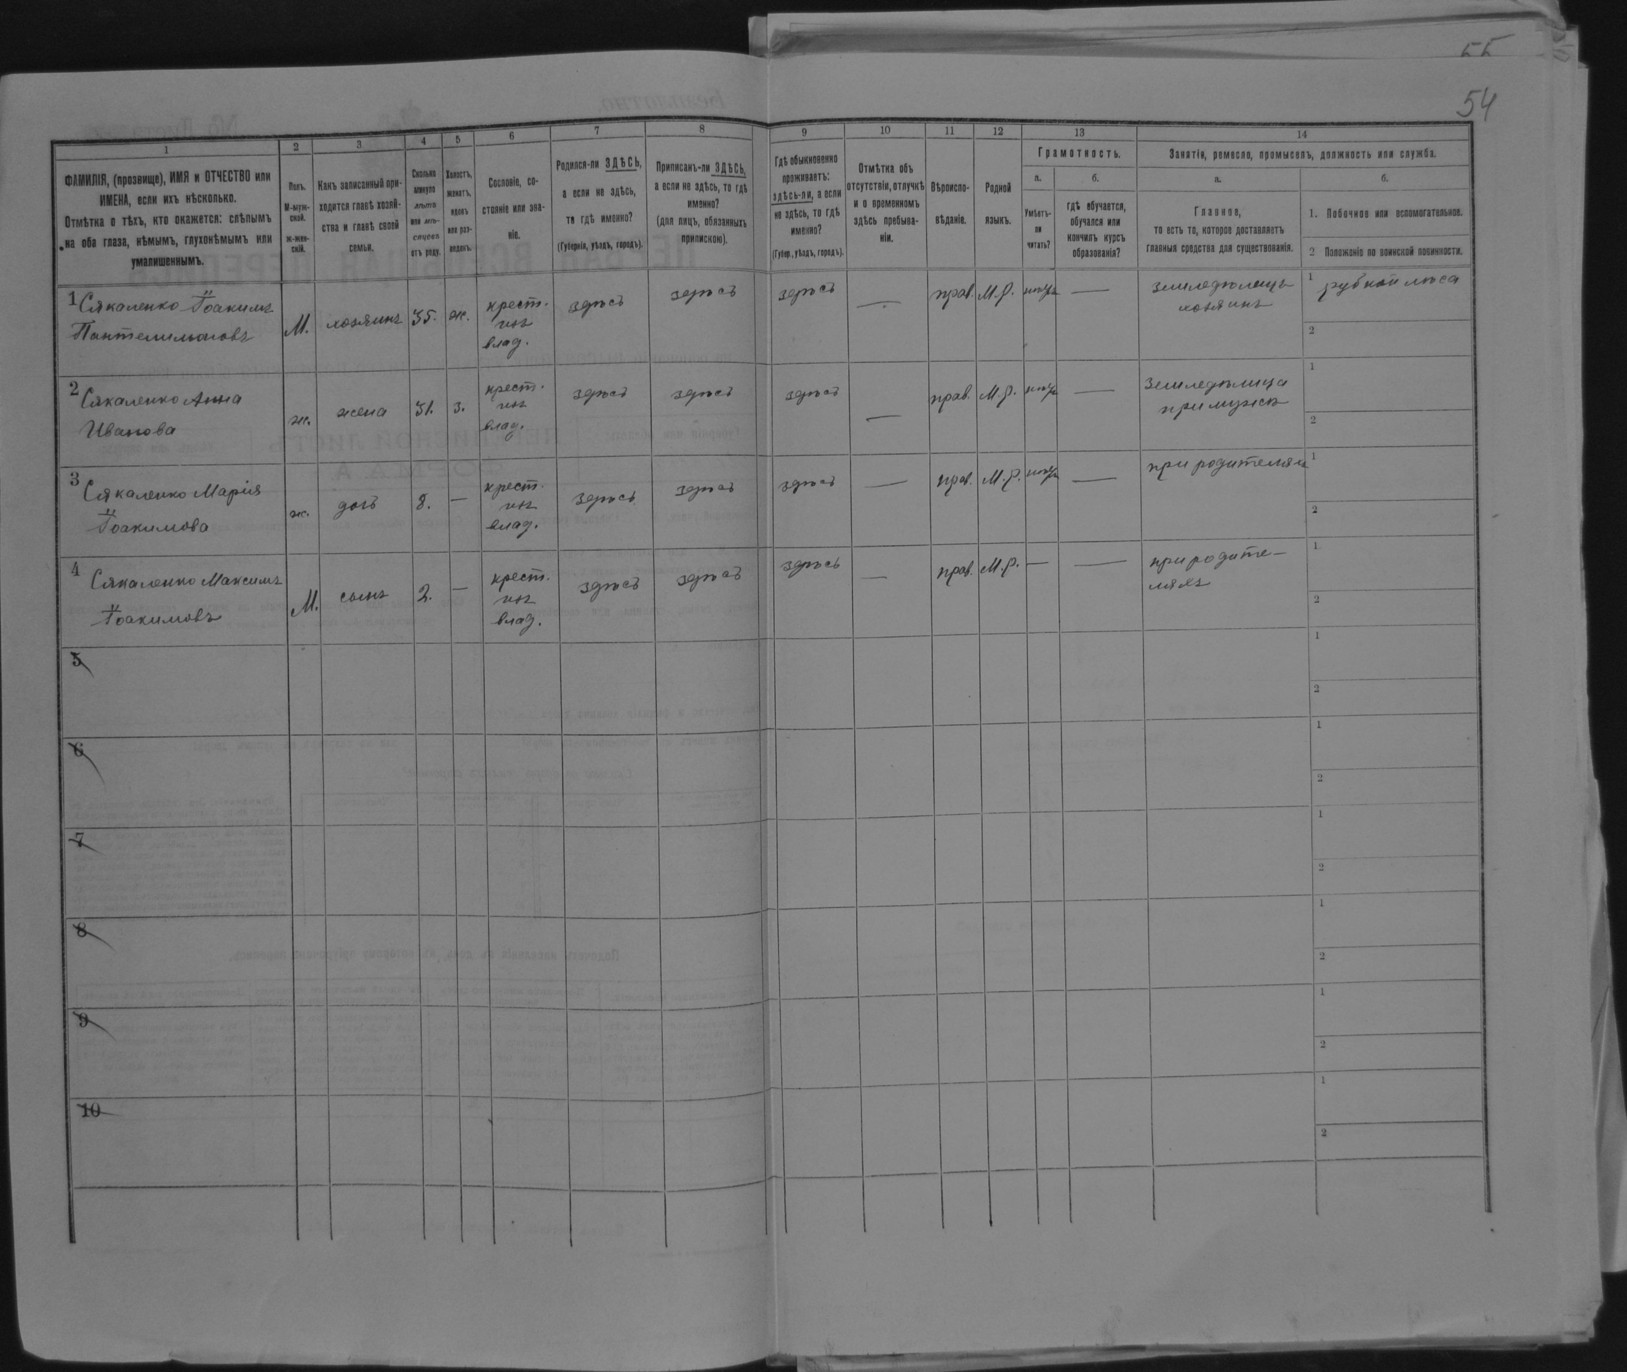 55
54
1
2
3
4
5
6
7
8
9
10
11
12
13
14
ФАМИЛІЯ, (прозвище), ИМЯ и ОТЧЕСТВО или
ИМЕНА, если ихъ нѣсколько.
Отмѣтка о тѣхъ, кто окажется: слѣпымъ
на оба глаза, нѣмымъ, глухонѣмымъ или
умалишеннымъ.
Полъ.
М-муж-
ской.
ж-жен-
скій.
Какъ записанный при-
ходится главѣ хозяй-
ства и главѣ своей
семьи.
Сколько
минуло
лѣтъ
или мѣ-
сяцевъ
отъ роду.
Холостъ,
женатъ,
вдовъ
или раз-
веденъ.
Сословіе, со-
стояніе или зва-
ніе.
Родился-ли ЗДѢСЬ,
а если не здѣсь,
то гдѣ именно?
(Губернія, уѣздъ, городъ).
Приписанъ-ли ЗДѢСЬ,
а если не здѣсь, то гдѣ
именно?
(для лицъ, обязанныхъ
припискою).
Гдѣ обыкновенно
проживаетъ:
здѣсь-ли, а если
не здѣсь, то гдѣ
именно?
(Губер., уѣздъ, городъ).
Отмѣтка объ
отсутствіи, отлучкѣ
и о временномъ
здѣсь пребыва-
ніи.
Вѣроиспо-
вѣданіе.
Родной
языкъ.
Грамотность.
а.
б.
Умѣетъ-
ли
читать?
гдѣ обучается,
обучался или
кончилъ курсъ
образованія?
Занятіе, ремесло, промыселъ, должность или служба.
а.
б.
Главное,
то есть то, которое доставляетъ
главныя средства для существованія.
1. Побочное или вспомогательное.
2 Положеніе по воинской повинности.
1 Сякаленко Іоакимъ
Пантелимоновъ
М.
хозяинъ
55.
ж.
крест.
изъ
влад.
здѣсь
здѣсь
здѣсь
—
прав.
М.р.
нѣтъ
—
земледѣлецъ
хозяинъ
1 рубкой лѣса
2
2 Сякаленко Анна
Иванова
ж.
жена
51.
з.
крест.
изъ
влад.
здѣсь
здѣсь
здѣсь
—
прав.
М.р.
нѣтъ
—
земледѣлица
при мужѣ
1
2
3 Сякаленко Марія
Іоакимова
ж.
дочь
8.
—
крест.
изъ
влад.
здѣсь
здѣсь
здѣсь
—
прав.
М.р.
нѣтъ
—
при родителяхъ
1
2
4 Сякаленко Максимъ
Іоакимовъ
М.
сынъ
2.
—
крест.
изъ
влад.
здѣсь
здѣсь
здѣсь
—
прав.
М.р.
—
—
при родите-
ляхъ
1
2
5
1
2
6
1
2
7
1
2
8
1
2
9
1
2
10
1
2